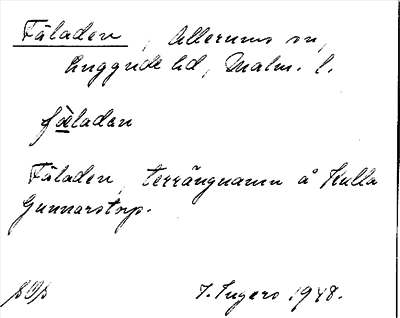 Fäladen, Allerums sn,
Luggude hd, Malm. l.
fäladan
Fäladen, terrängnamn å Kulla
Gunnarstorp.
I. Ingers 1948.